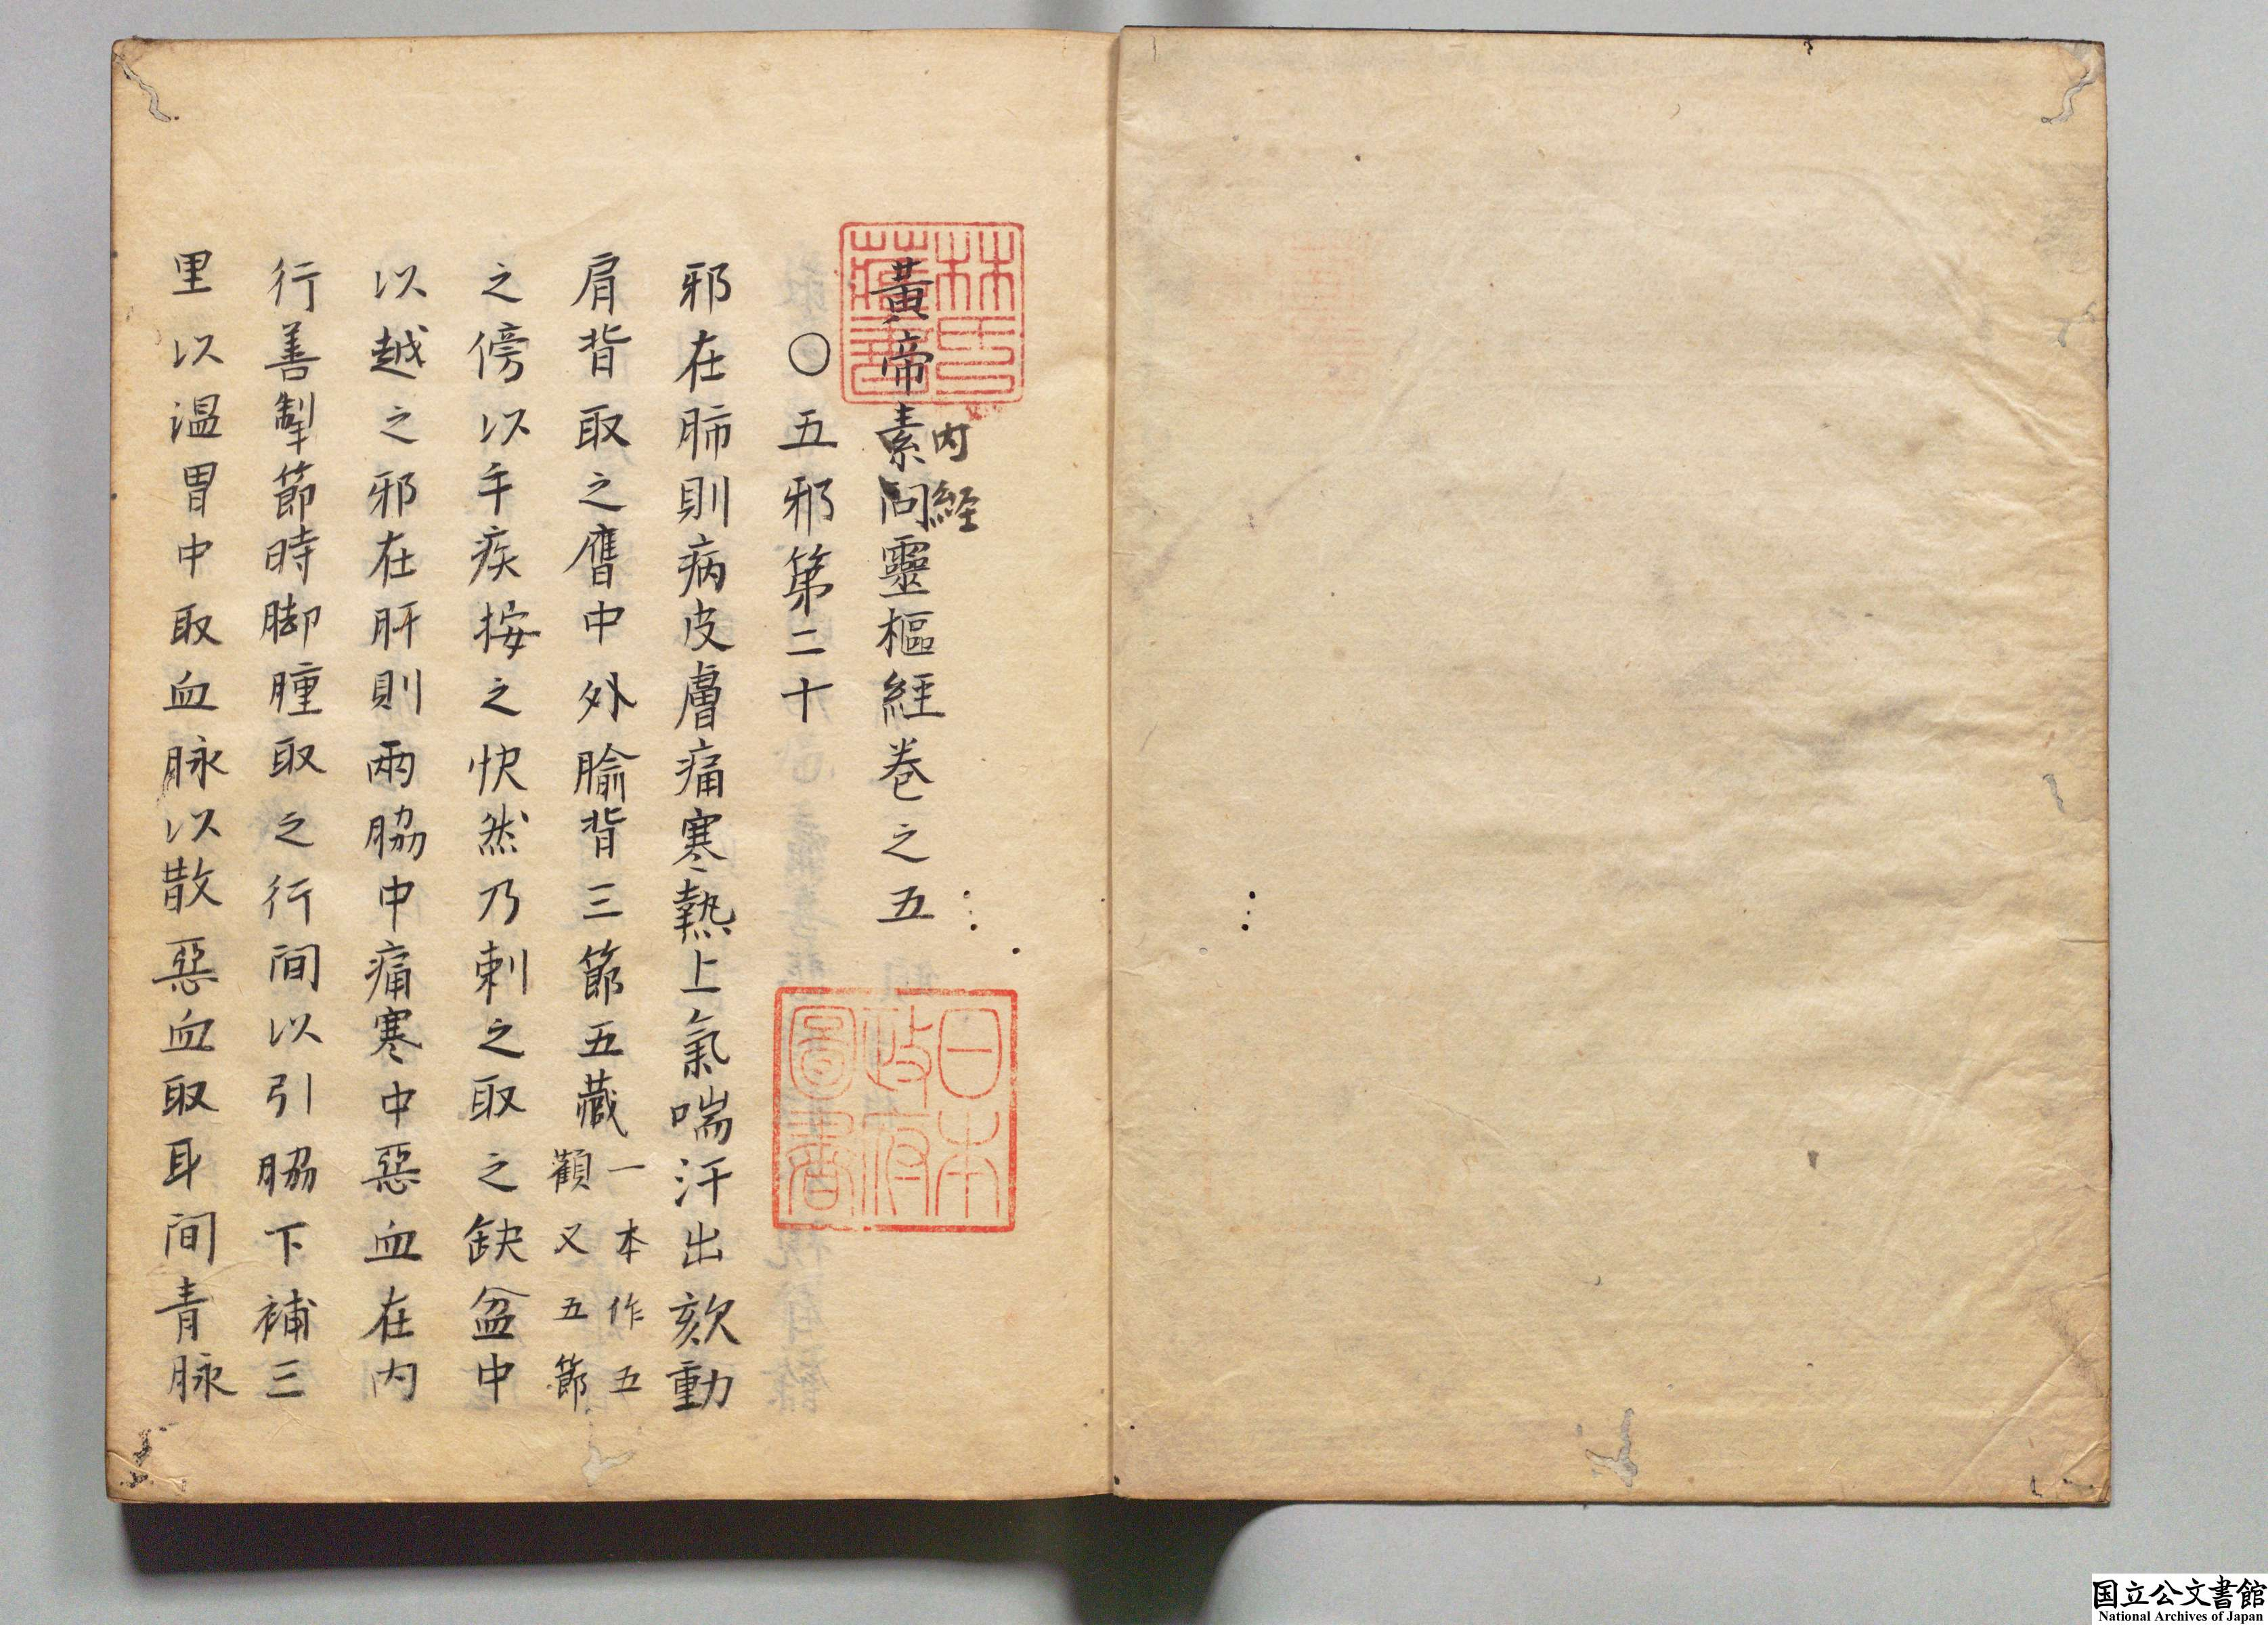 黃帝素問靈樞經卷之五
内経
○五邪第二十
邪在肺則病皮膚痛寒熱上氣喘汗出欬動
肩背取之膺中外腧背三節五藏
一本作五
顀又五節
之傍以手疾按之快然乃刺之取之缺盆中
以越之邪在肝則兩脇中痛寒中惡血在内
行善掣節時脚腫取之行間以引脇下補三
里以温胃中取血脉以散惡血取耳間青脉
林氏
藏書
日本
政府
圖書
国立公文書館
National Archives of Japan